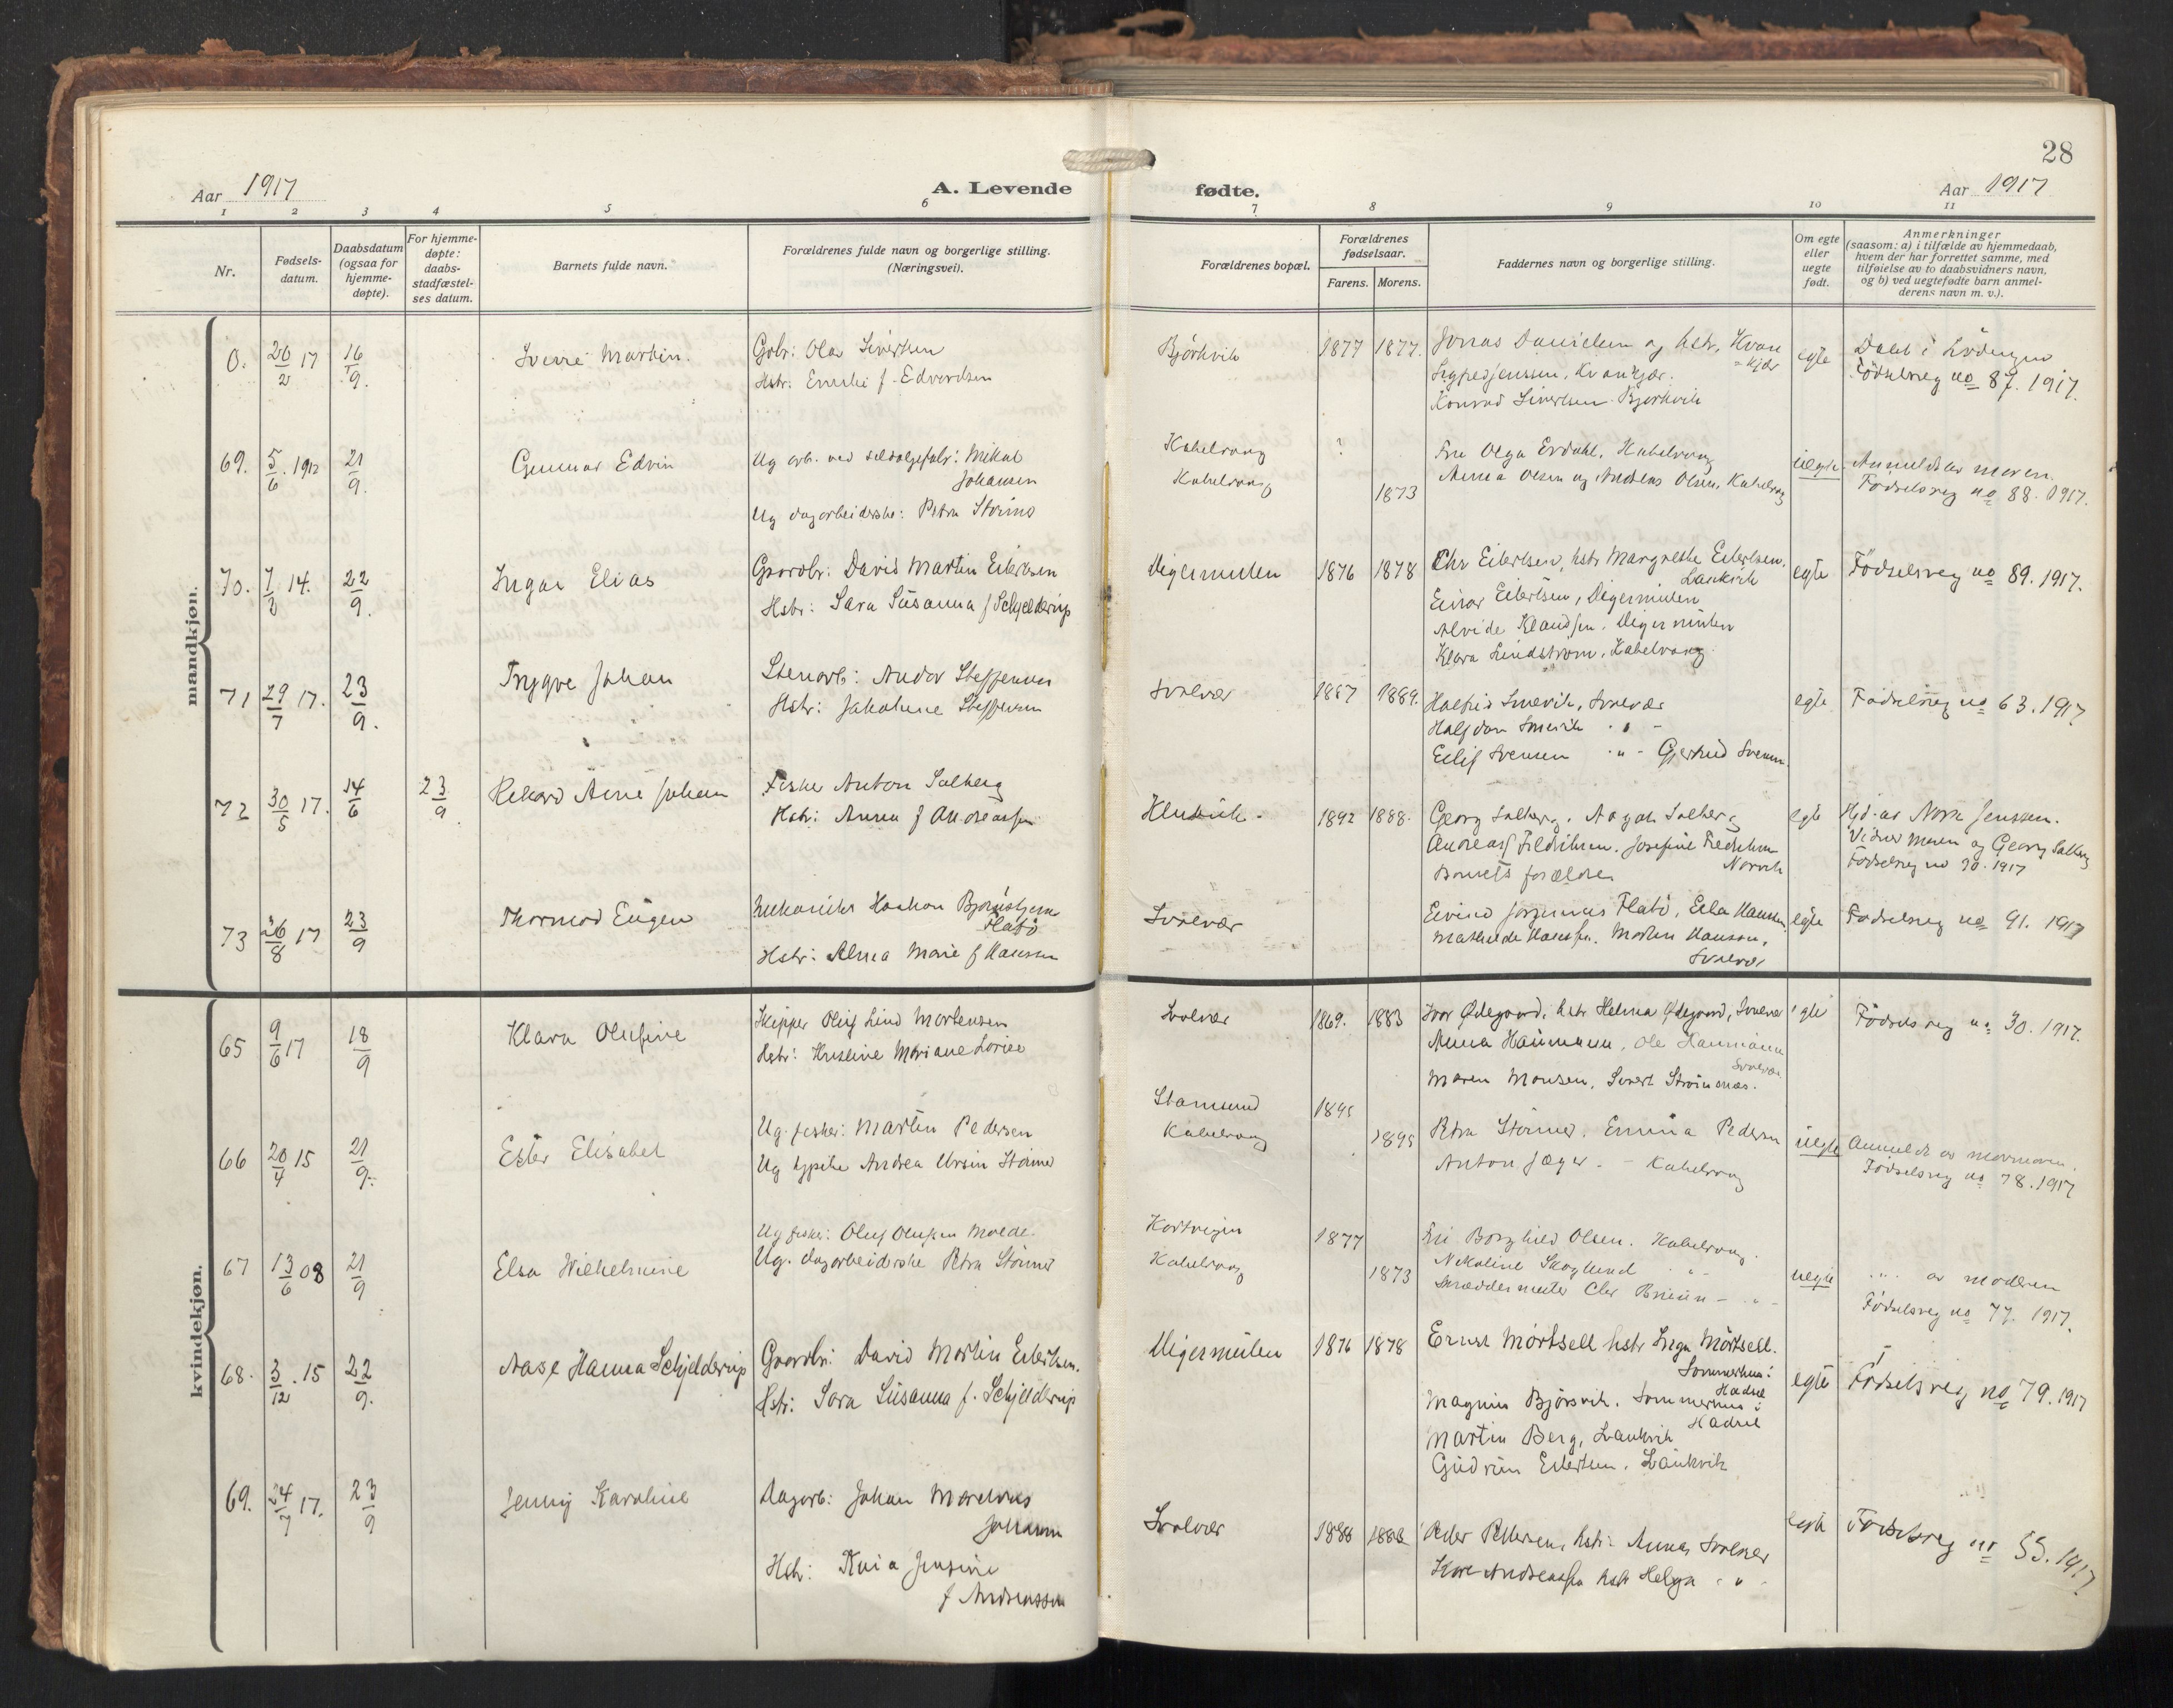 28
Aar 1917
A. Levende fødte.
Aar 1917
1 2 3 4 5 6 7 8 9 10 11
Nr.
Fødsels-
datum.
Daabsdatum
(ogsaa for
hjemme-
døpte).
For hjemme-
døpte:
daabs-
stadfæstel-
ses datum.
Barnets fulde navn.
Forældrenes fulde navn og borgerlige stilling.
(Næringsvei).
Forældrenes bopæl.
Forældrenes
fødselsaar.
Farens. Morens.
Faddernes navn og borgerlige stilling.
Om egte
eller
uegte
født.
Anmerkninger
(saasom: a) i tilfælde av hjemmedaab,
hvem der har forrettet samme, med
tilføielse av to daabsvidners navn,
og b) ved uegtefødte barn anmel-
derens navn m. v.).
mandkjøn.
0. 20/2 17 16/9. Sverre Martin. Gbr: Olav Sivertsen
Hstr: Emilie f. Edvardsen
Bjørkvik 1877 1877. Jonas Danielsen og hstr, Kvan
kjær
Konrad Sivertsen Bjørkvik
egte
Døbt i Lødingen
Fødselsreg no 87. 1917.
69. 5/6. 1912 21/9. Gunnar Edvin Ug arb. ved Mikal
Johansen
Ug dagarbeiderske: Petra Størmo
Kabelvaag ?
Kabelvaag 1873
Fru Olga Evdahl, Kabelvaag
Anna Olsen og Andreas Olsen, Kabelvaag
uegte
Anmeldt av moren.
Fødselsreg no 88. 1917.
70. 7/2 14. 22/9. Ingar Elias Gaardbr: David Martin Eilertsen
Hstr: Sara Susanna f Schjelderup
Digermulen 1876 1878 Chr Eilertsen, hstr Margrethe Eilertsen.
Laukvik
Einar Eilertsen, Digermulen
Alvide Klaudsen. Digermulen
Klara Lindstrøm, Kabelvaag
egte Fødselsreg no 89. 1917.
71 29/7 17. 23/9. Trygve Johan Stenarb: Andor Steffensen
Hstr: Jakobine Steffensen
Svolvær 1887 1889.
Halfdan Smevik " -
Eilif Svensen " - Gjertrud Svensen.
egte Fødselsreg no 63. 1917
72 30/5 17. 14/6 23/9. Rikard Arne Johan Fisker Anton Solberg
Hstr: Anna f Andreassen
1892 1888. Georg Solberg. Aagot Solberg
Andreas Fredriksen. Josefine Fredriksen
Narvik
Barnets forældre
egte Hjd. av Nora Jenssen.
Vidner Moren og Georg Solberg
Fødselsreg no 90. 1917
73 26/8 17 23/9 Thormod Eugen Mekaniker Haakon Bjørnstjerne
Flatø
Hstr: Alma Marie f Hanssen
Svolvær
Eivind Flatø, Ella Hanssen
Mathilde Hanssen. Morten Hanssen.
Svolvær
egte Fødselsreg no 91. 1917
kvindekjøn.
65 9/6 17 18/9 Klara Olufine Skipper Oluf Lind Mortensen
Hstr: Kristine Mariane
Svolvær 1869. 1883 Ivar Ødegaard, hstr Helma Ødegaard, Svolvær
Anna Haumann, Ole Haumann
Svolvær
Maren Monsen, Sivert Strømsnes.
egte Fødselsreg no 30. 1917.
66 20/4 15 21/9. Ester Elisabet Ug. fisker: Martin Pedersen
Ug Andrea Ursin Størmer
Stamsund 1895
Kabelvaag 1895
Petra Størmer. Emma Pedersen
Anton Jæger. - Kabelvaag
uegte Anmeldt av mormoren.
Fødselsreg no 78. 1917
67 13/6 08 21/9 Elsa Wilhelmine Ug fisker: Oluf Olufsen Molde.
Ug. dagarbeiderske Petra Størmer
1877
Kabelvaag 1873
Borghild Olsen. Kabelvaag.
Nikoline Skoglund " -
Skræddermester Chr Bruun - " -
uegte " av moderen
Fødselsreg no 77. 1917.
68. 3/12. 15 22/9. Aase Hanna Schjelderup Gaardbr: David Martin Eilertsen.
Hstr: Sara Susanna f. Schjelderup
Digermulen 1876 1878 Ernst Mørtsell hstr Inga Mørtsell.
Sommerhus i
Hadsel
Magnus Bjørsvik. Sommerhus i
Hadsel
Martin Berg, Laukvik
Gudrun Eilertsen. Laukvik
egte Fødselsreg no 79. 1917
69. 24/7 17. 23/9 Jenny Karoline Dagarb: Johan Marelius
Johansen
Hstr: Kaia Jensine
f Andreassen
Svolvær 1888 1888 Peder Pettersen, hstr: Anna, Svolvær
Kåre Andreassen hstr Helga " -
egte Fødselsreg no 55. 1917